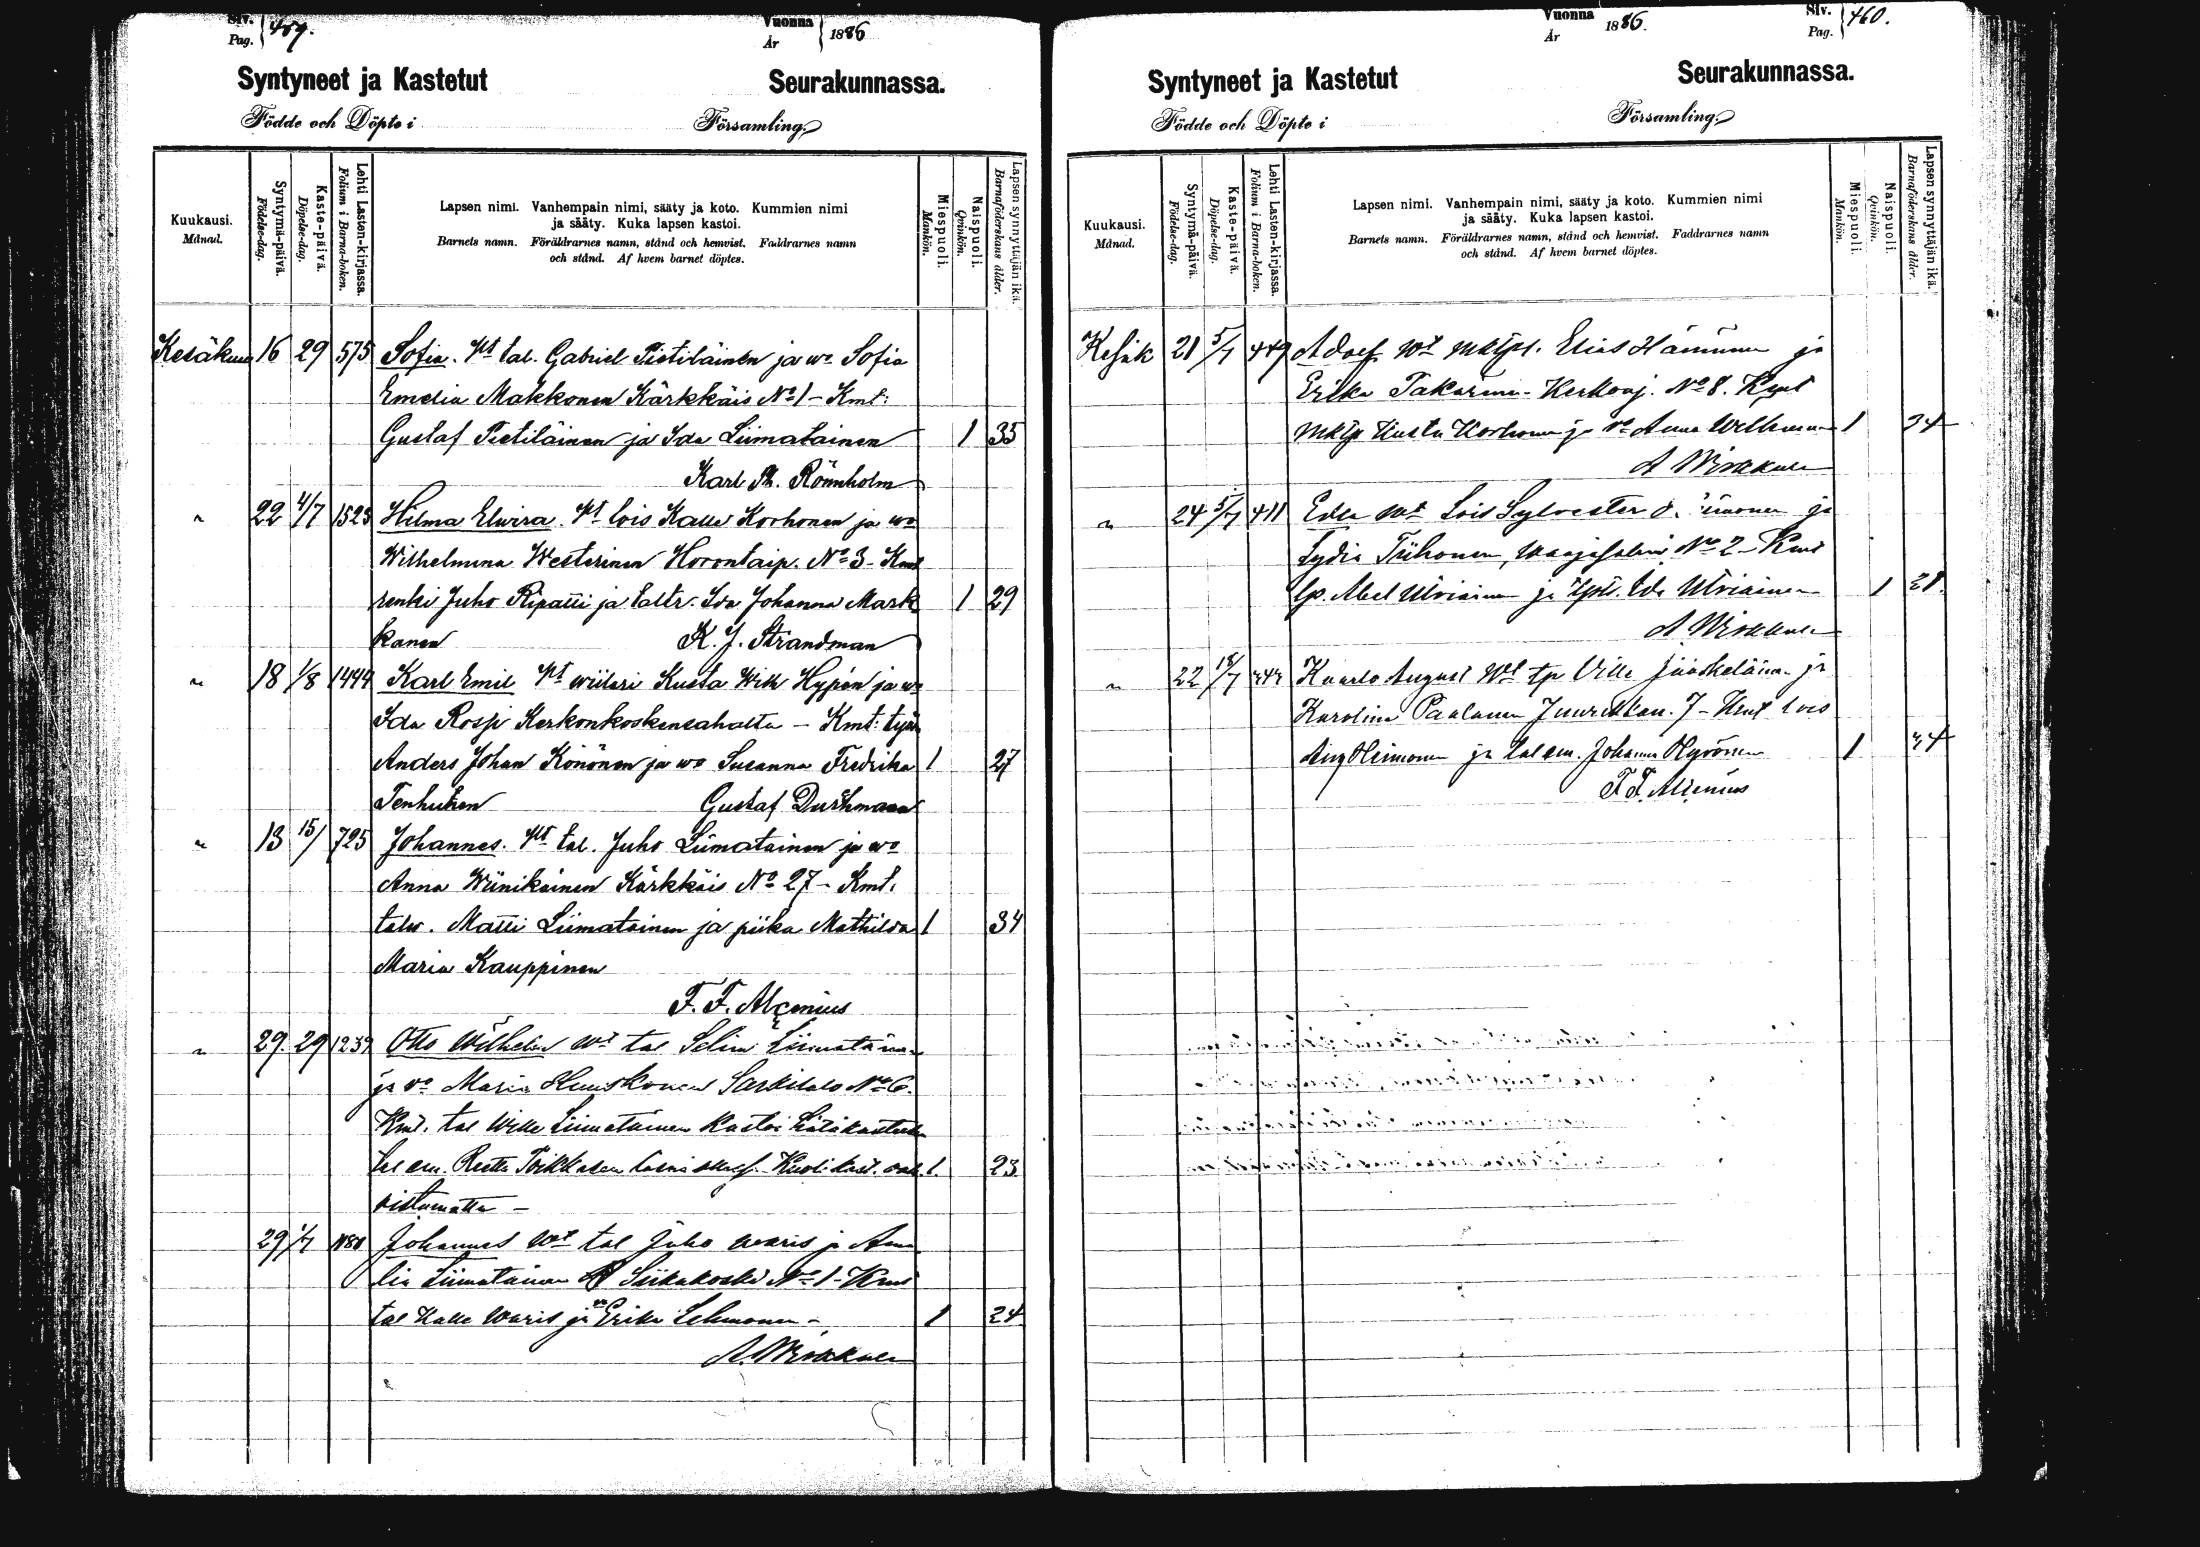 Siv. Pag. 459. Vuonna År 1886
Syntyneet ja Kastetut Seurakunnassa.
Födde och Döpte i Församling.
Kuukausi. Månad.
Syntymä-päivä. Födelse-dag.
Kaste-päivä. Döpelse-dag.
Lehti Lasten-kirjassa. Folium i Barna-boken.
Lapsen nimi. Vanhempain nimi, sääty ja koto. Kummien nimi
ja sääty. Kuka lapsen kastoi.
Barnets namn. Föräldrarnes namn, stånd och hemvist. Faddrarnes namn
och stånd. Af hvem barnet döptes.
Miespuoli. Mankön.
Naispuoli. Qvinkön.
Lapsen synnyttäjän ikä. Barnaföderskans ålder.
Kesäkuu 16 29 575 Sofia. Wt tal. Gabriel Pietiläinen ja wo Sofia
Emelia Makkonen Kärkkäis No 1 - Kmt:
Gustaf Pietiläinen ja Ida Liimatainen 1 35
Karl Rönnholm
" 22 4/7 1523 Hilma Elwira. Wt lois Kalle Korhonen ja wo
Wilhelmina Westerinen Horontaip. No 3 - Kmt
renki Juho Ripatti ja taltr. Ida Johanna Mark 1 29
kanen K. J. Strandman
" 18 1/8 1444 Karl Emil Wt wiilari Kusta Wilh Hypén ja wo
Ida Rosp Kerkonkoskensahalta - Kmt: työm
Anders Johan Könönen ja wo Susanna Fredrika 1 27
Tenhunen Gustaf Duchman
" 13 15/ 725 Johannes. Wt tal. Juho Liimatainen ja wo
Anna Wiinikainen Kärkkäis No 27 - Kmt.
talw. Matti Liimatainen ja piika Mathilda 1 34
Maria Kauppinen
F. F. Alcenius
" 29. 29 1239 Otto Wilhelm Wt tal Selim Liimatainen
ja vo Maria Huuskonen Särkisalo No 6.
Kmt. tal Wille Liimatainen Kastoi hätäkasteen
tal em. Reetta Kuoli kast. vah 1. 23
vistamatta -
29 1/7 1180 Johannes Wt tal Juho Waris ja Ama
lia Liimatainen Siikakoski No 1 - Kmt
tal Kalle Waris ja vo Erika Lehmonen - 1 24
A. Wirkkula
Vuonna År 1886. Siv. Pag. 460.
Syntyneet ja Kastetut Seurakunnassa.
Födde och Döpte i Församling.
Kuukausi. Månad.
Syntymä-päivä. Födelse-dag.
Kaste-päivä. Döpelse-dag.
Lehti Lasten-kirjassa. Folium i Barna-boken.
Lapsen nimi. Vanhempain nimi, sääty ja koto. Kummien nimi
ja sääty. Kuka lapsen kastoi.
Barnets namn. Föräldrarnes namn, stånd och hemvist. Faddrarnes namn
och stånd. Af hvem barnet döptes.
Miespuoli. Mankön.
Naispuoli. Qvinkön.
Lapsen synnyttäjän ikä. Barnaföderskans ålder.
Kesäk 21 5/7 449 Adolf Wt mktpl. Elias Hänninen ja
Erika Takarinen - Kerkonj. No 8. Kmt
Kusta Korhonen ja vo Anna Wellman 1 24
A Wirkkula
" 24 5/7 411 Edla Wt Lois Sylvester ja
Lydia Tiihonen, No 2 - Kmt
Abel Utriainen ja Ida Utriainen 1 21.
A. Wirkkula
" 22 18/7 Kaarlo August Wt tp Ville Jääskeläinen ja
Karolina Paalanen 7 - Kmt lois
Aug Heimonen ja tal em. Johanna Hyvönen 1 34
F F. Alcenius